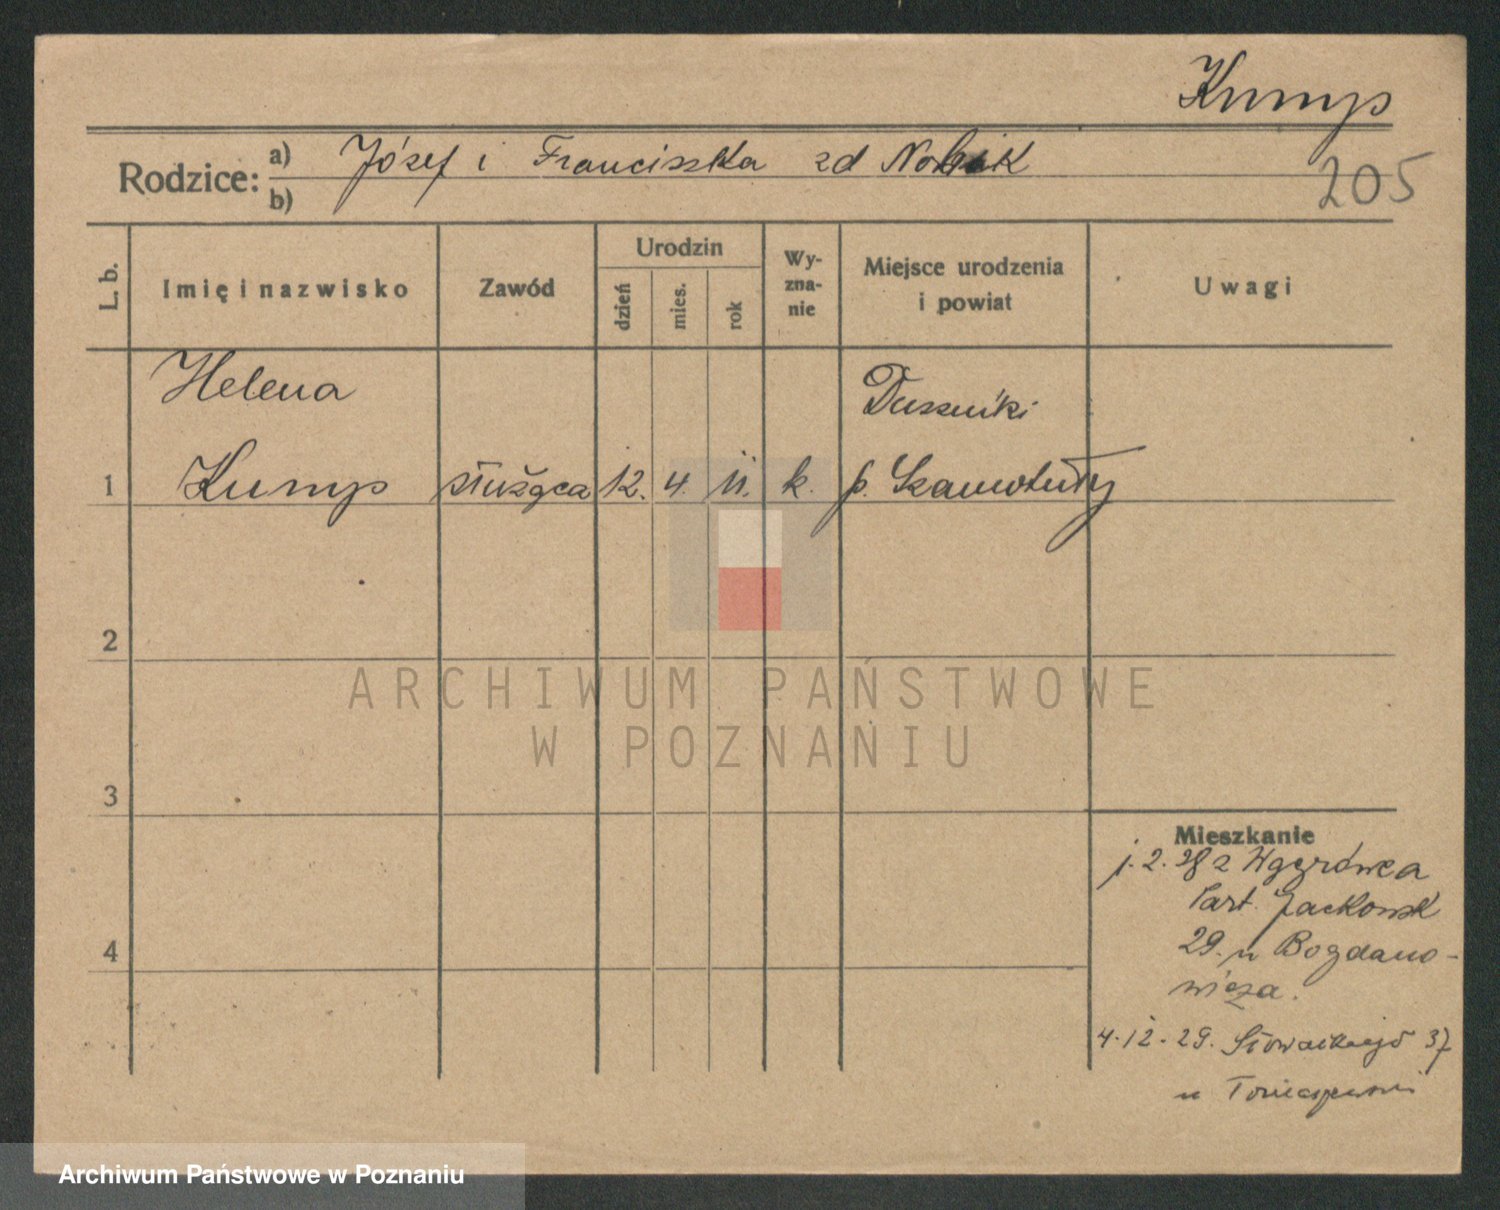 Kumys
Rodzice: a) Józef i Franciszka zd
b)
205
L. b.
Imię i nazwisko
Zawód
Urodzin
dzień
mies.
rok
Wy-
zna-
nie
Miejsce urodzenia
i powiat
Uwagi
Helena
Duszniki
1 Kumys służąca 12. 4. 11. k. p. Szamotuły
2
3
4
Mieszkanie
j. 2. 28 z Wągrówca
Part. Jackowsk
29. u Bogdano-
wicza.
4.12.29. Słowackiego 37
u
ARCHIWUM PAŃSTWOWE
W POZNANIU
Archiwum Państwowe w Poznaniu